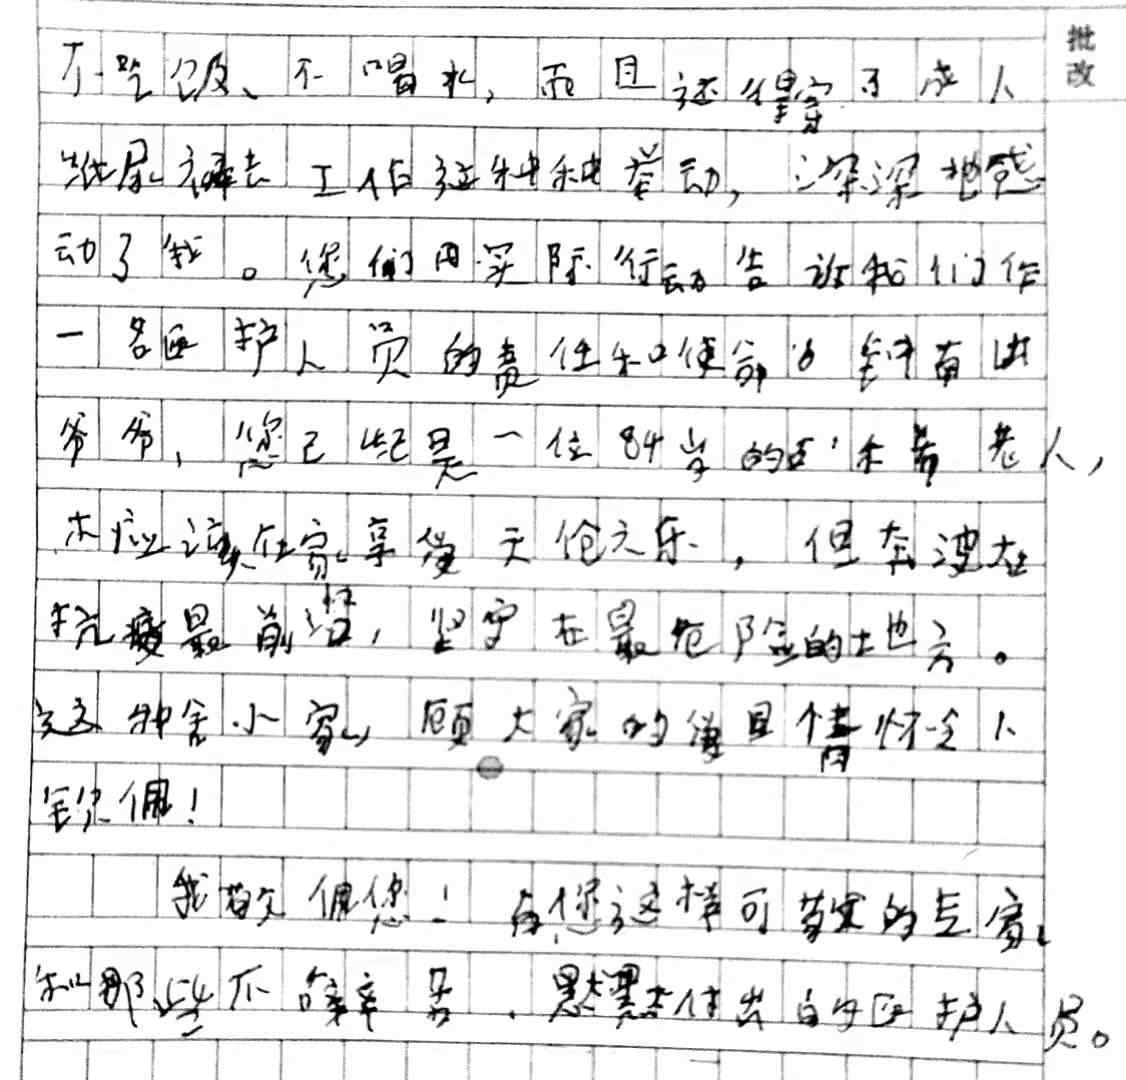 批改
不吃饭、不喝水，而且还得穿了成人
纸尿裤去工作这种种举动，深深地感
动了我。您们用实际行动告诉我们作
一名医护人员的责任和使命。钟南山
爷爷，您已经是一位84岁的白发老人，
本应该在家享受天伦之乐，但奔波在
抗疫最前沿，坚守在最危险的地方。
这种舍小家，顾大家的情怀令人
钦佩！
我敬佩您！有您这样可敬的专家，
和那些不辞辛苦、默默付出的医护人员。